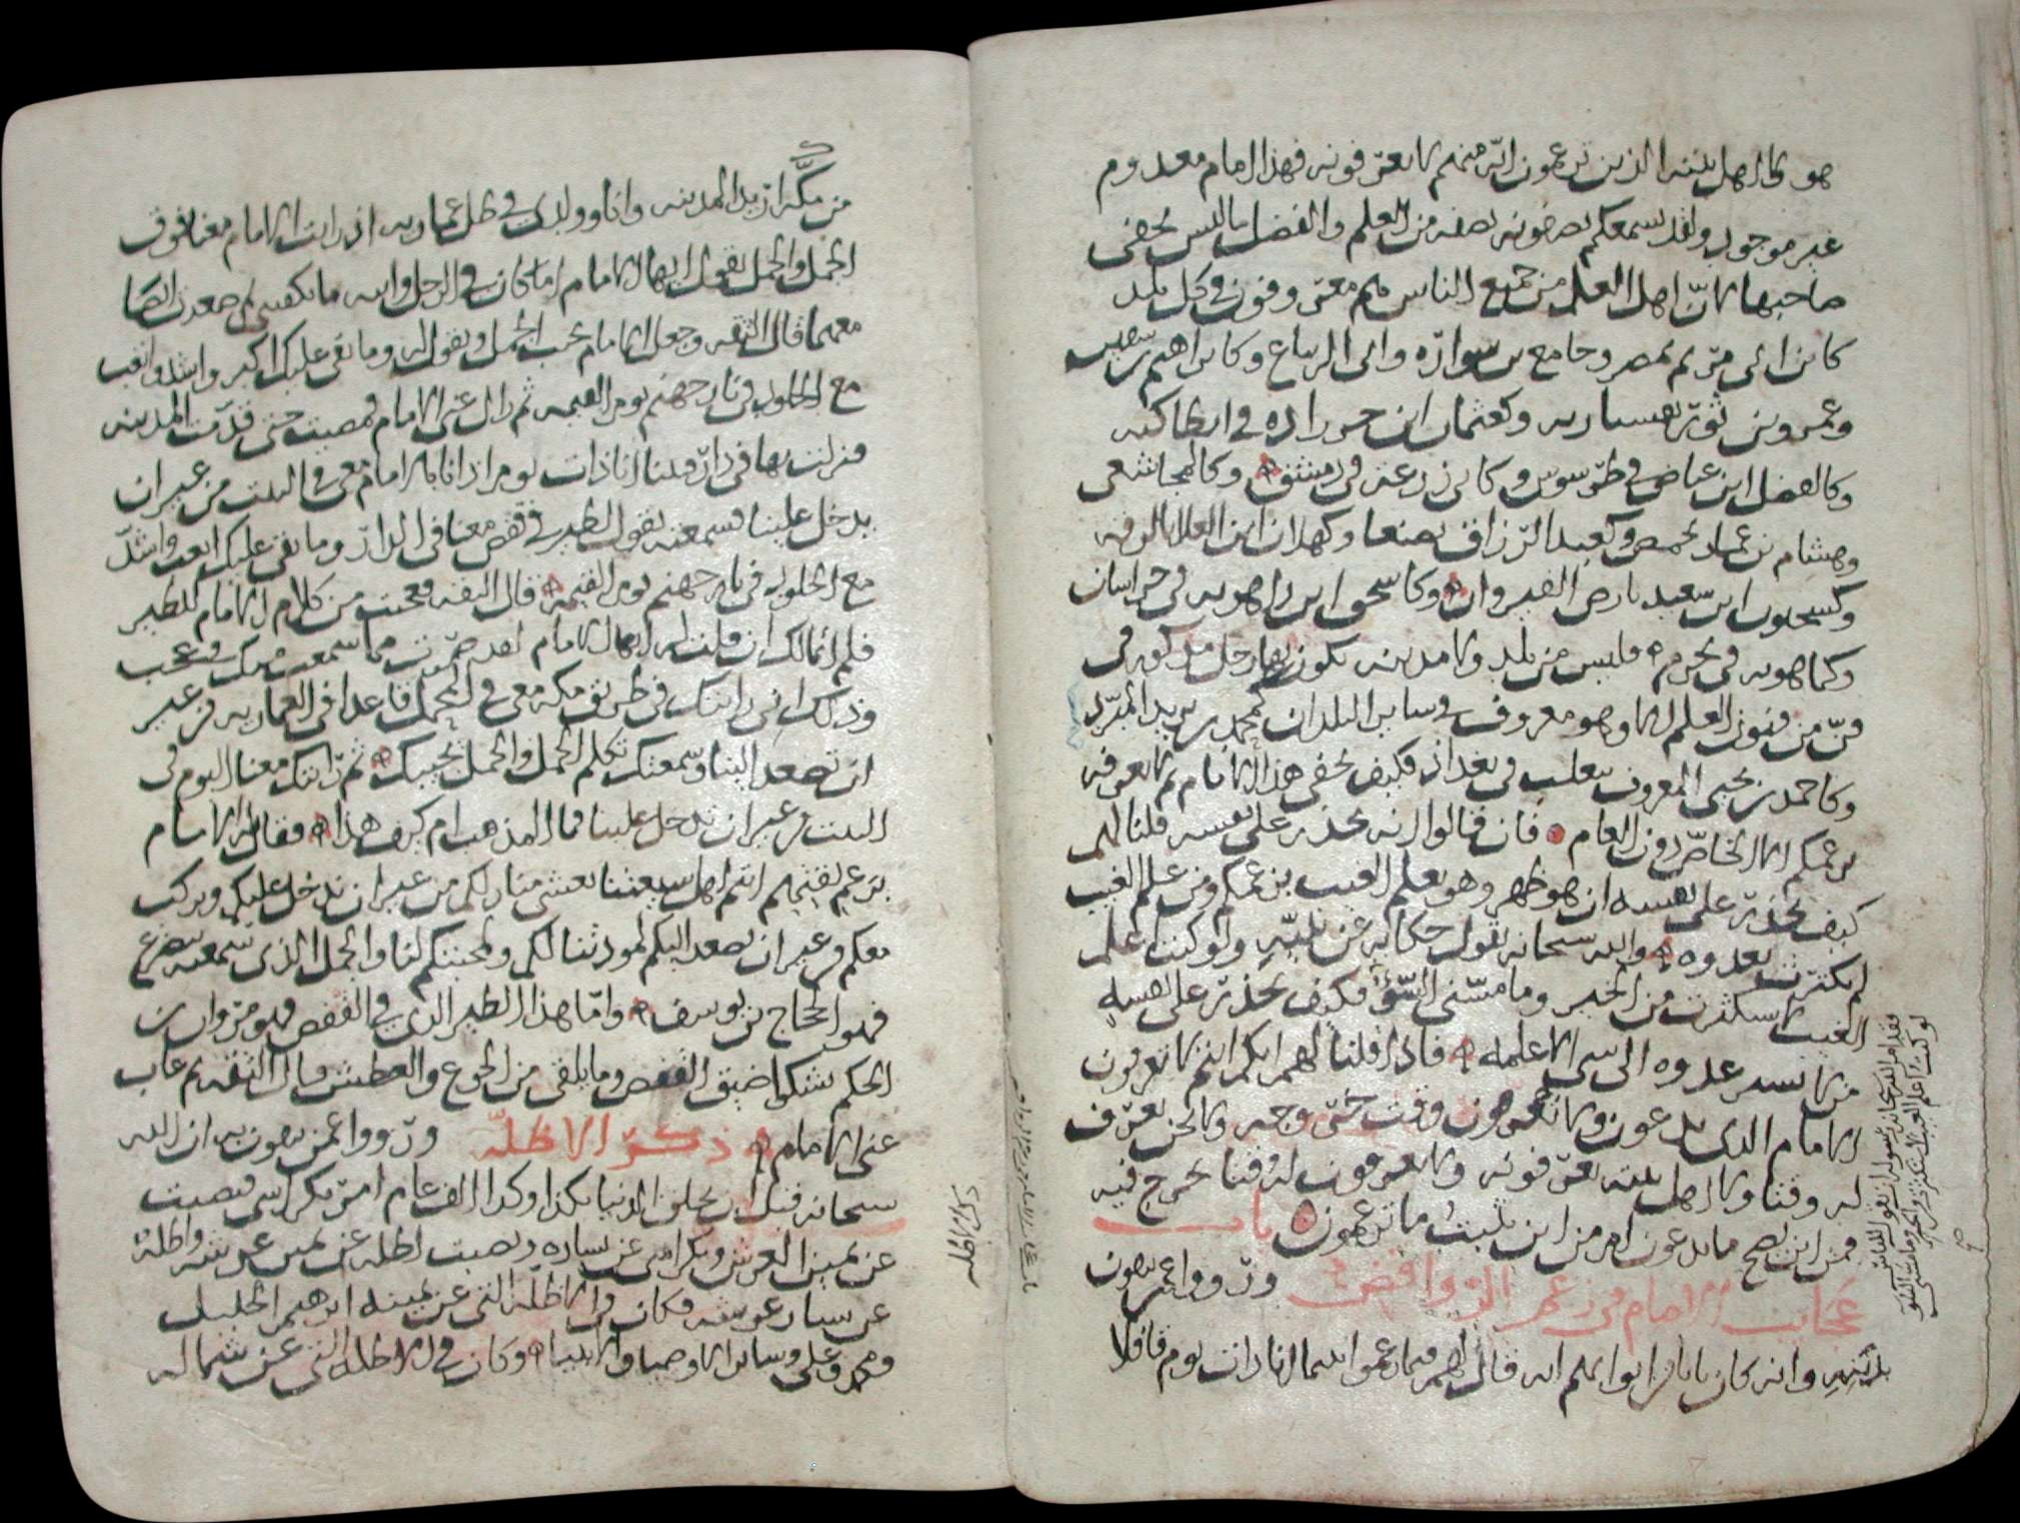 هو ولا اهل بيته الذين تزعمون انه منهم لا يعرفونه فهذا امام معدوم
غير موجود ولقد نسمعكم تصفونه بصفه من العلم والفضل ما ليس يخفى
صاحبها لان اهل العلم من جميع الناس هم معروفون في كل بلد
كابن ابي مريم بمصر وجامع بن سواده وابي الرباع وكابراهيم بنصيبين
وعمرو بن ثور بقيساريه وكعثمان ابن حرزاده في انطاكيه
وكالفضل ابن عياض في طرسوس وكابي زرعه في دمشق وكالمجاشعي
وهشام بن عمار بحمص وكعبد الرزاق بصنعا وكهلال ابن العلا بالرقه
وكسحنون ابن سعيد بارض القيروان وكاسحق ابن راهويه في خراسان
وكماهويه في فليس من بلد ولا مدينه يكون بها رجل مذكور في
فن من فنون العلم الا وهو معروف في ساير البلدان كمحمد بن يزيد المبرد
وكاحمد بن يحيى المعروف بثعلب في بغداد فكيف يخفى هذا الامام لم لا يعرفه
بزعمكم الا الخاص دون العام فان قالوا انه يحذر على نفسه قلنا لهم
كيف يحذر على نفسه ان هو ظهر وهو يعلم الغيب بزعمكم ومن علم الغيب
لم يكترث بعدوه والله سبحانه يقول حكايه عن نبيه ولو كنت اعلم
الغيب لاستكثرت من الخير وما مسني السوء فكيف يحذر على نفسه
من لا يسر عدوه الى شي الا علمه فاذا قلنا لهم ايكم انتم لا تعرفون
الامام الذي تدعون ولا تعرفون وقت حتى وجه ولا نحن نعرف
له وقتا ولا اهل بيته يعرفونه ولا يعرفون له وقتا يخرج فيه
فمن اين يصح ما تدعون ام من اين يثبت ما تزعمون باب
عجايب الامام في زعم الروافض ورووا عمن يثقون
بدينه وانه كان بابا قال لهم فيما زعموا بينما انا ذات يوم قافلا
فقد امر الله سبحانه رسوله ان يقول للناس
لو كنت اعلم الغيب لاستكثرت من الخير وما مسني السوء
من مكه اريد المدينه وانا وولدي في ظل عماريه اذ رايت الامام معنا فوق
الجمل والجمل يقول ايها الامام اما كان في الرجل وابنه ما يكفيني حتى صعدت ايضا
معهما قال الثقه وجعل الامام يجيب الجمل ويقول له وما بقي عليك اكبر واشد واتعب
مع الخلود في نار جهنم يوم القيمه ثم زال عني الامام فمضيت حتى قدمت المدينه
فنزلت بها في دار فبينا انا ذات يوم اذ انا بالامام معي في البيت من غير ان
يدخل علينا فسمعته يقول لطير في قفص معنا في الدار وما بقي عليك اتعب واشد
مع الخلود في نار جهنم يوم القيمه قال الثقه فعجبت من كلام الامام للطير
فلم اتمالك ان قلت له ايها الامام لقد حيرت ما سمعت منك وعجب
وذلك اني رايتك في طريق مكه معي في المحمل قاعدا في العماريه من غير
ان تصعد الينا وسمعتك تكلم الجمل والجمل يجيبك ثم رايتك معنا اليوم في
البيت من غير ان تدخل علينا فما المذهب ام كيف هذا فقال له الامام
بزعم ثقتهم انتم اهل شيعتنا نغشى منازلكم من غير ان ندخل عليكم ونركب
معكم من غير ان نصعد اليكم لمودتنا لكم ولمحبتكم لنا والجمل الذي سمعته يتضرع
فهو الحجاج بن يوسف واما هذا الطير الذي في القفص فهو مروان بن
الحكم يشكوا ضيق القفص وما يلقى من الجوع والعطش وقال الثقه ثم غاب
عني الامام ذكر الاظله ورووا عمن يثقون به ان الله
سبحانه قبل ان يخلق الدنيا بكذا وكذا الف عام امر بكراسي فنصبت
عن يمين العرش وبكراسي عن يساره ونصبت اظله عن يمين عرشه واظله
عن يسار عرشه فكان في الاظله التي عن يمينه ابرهيم الخليل
ومحمد وعلي وساير الاوصيا والانبيا وكان في الاظله التي عن شماله
ذكر الاظله